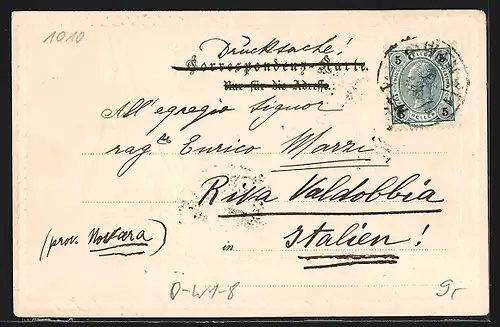 1010
Drucksache!
Correspondenz-Karte.
Nur für die Adresse.
5 5
HELLER
5 5
All'egregio Signor
rag.re Enrico Marzi
Riva Valdobbia
(prov. Novara) in Italien!
D-W1-8
9,-